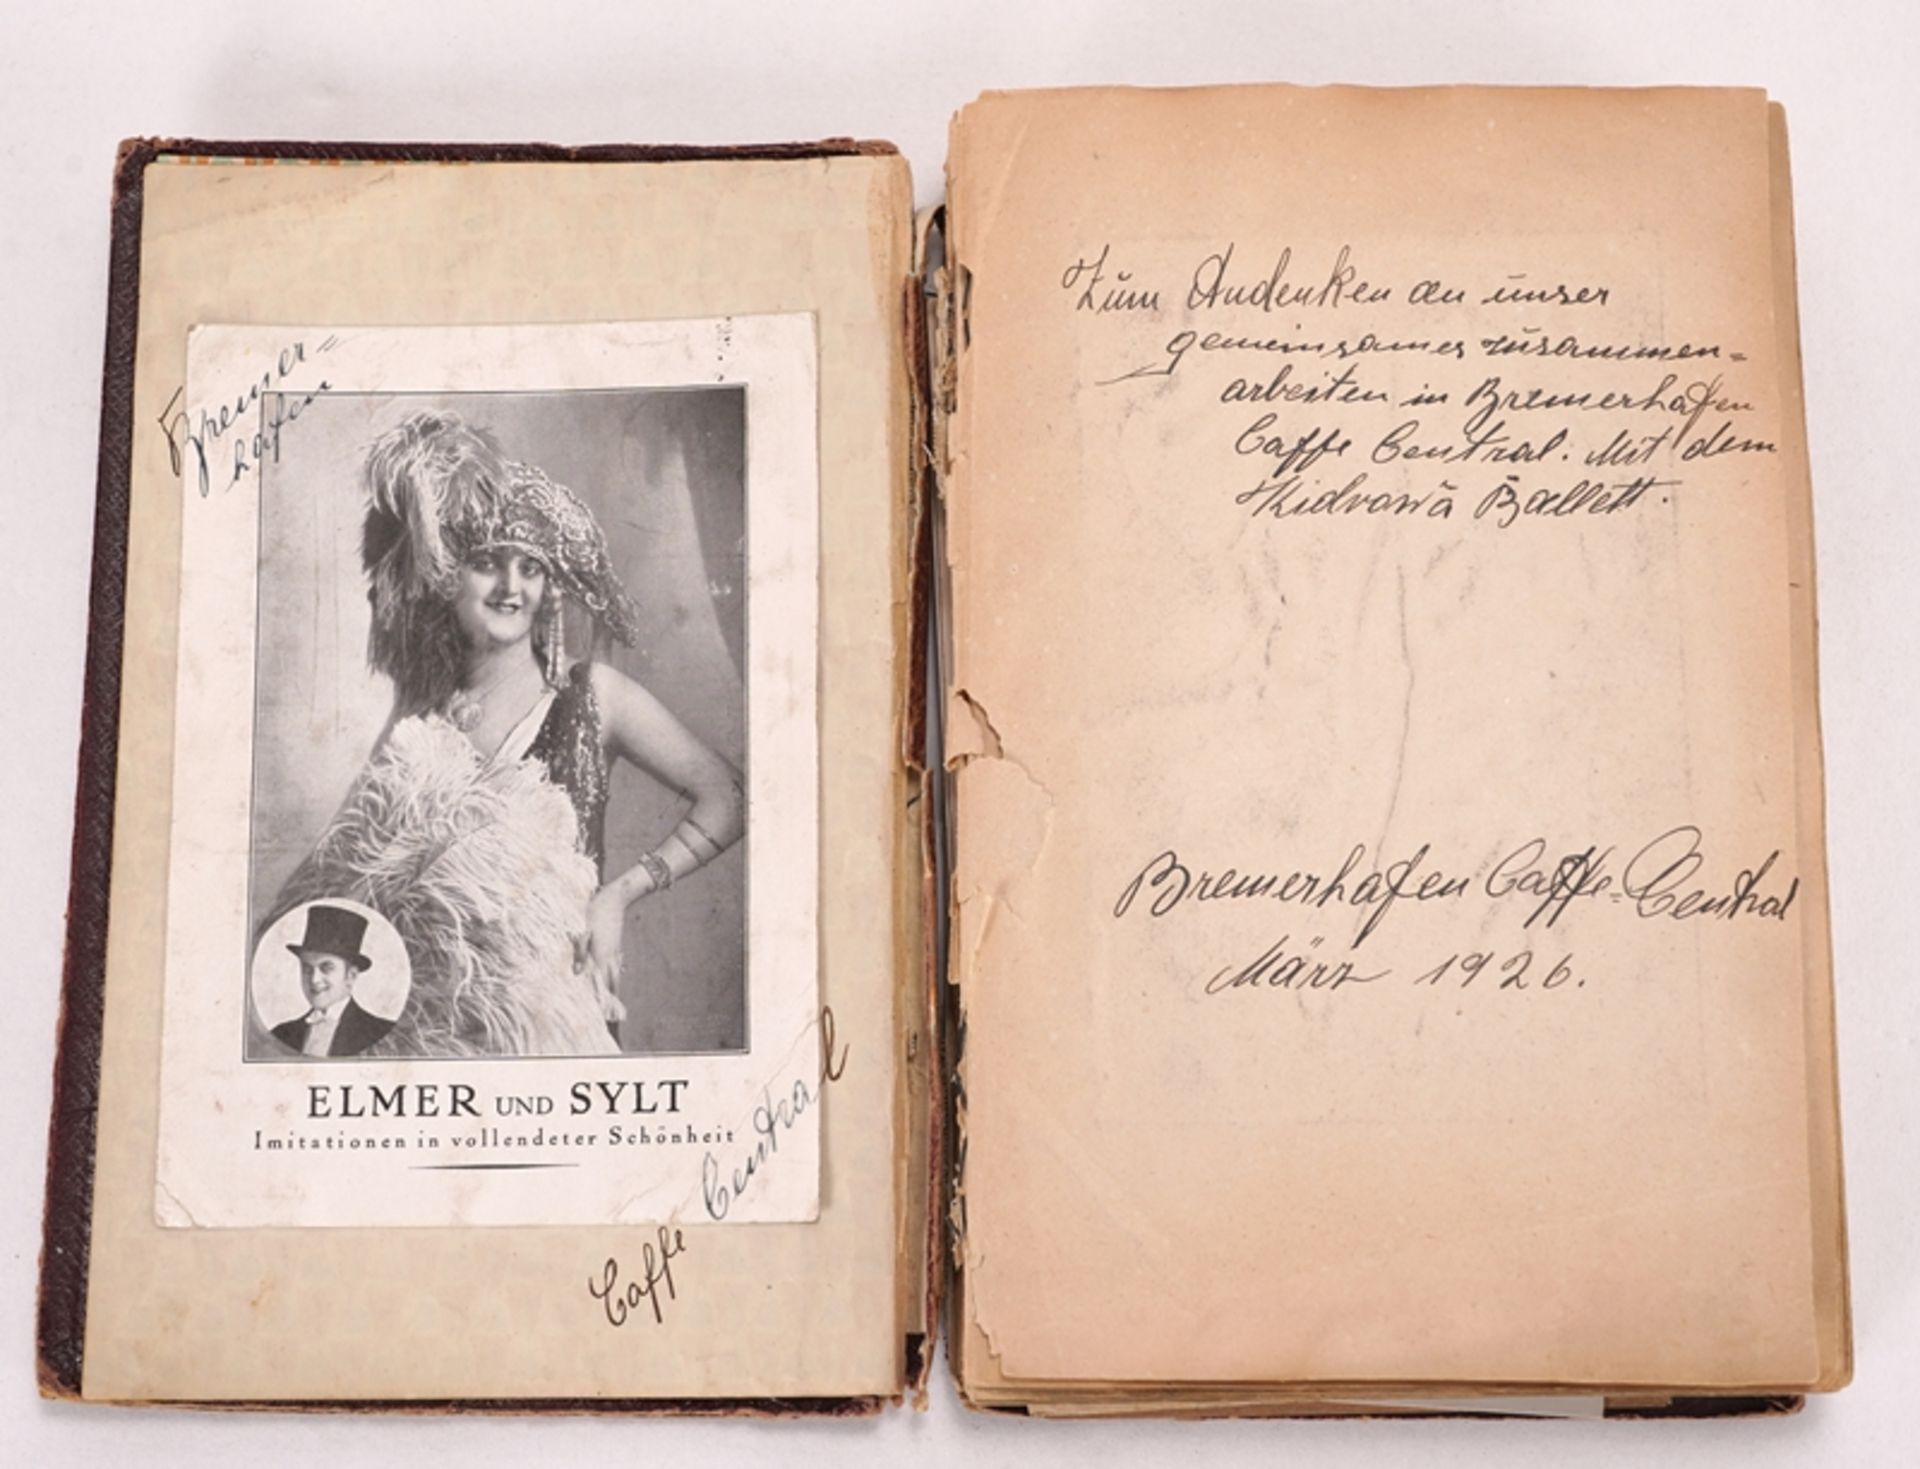 Bremer=
hafen
ELMER UND SYLT
Imitationen in vollendeter Schönheit
Caffe Central
Zum Andenken an unser
gemeinsames zusammen=
arbeiten in Bremerhafen
Caffe Central. Mit dem
Ballett.
Bremerhafen Caffe=Central
März 1926.